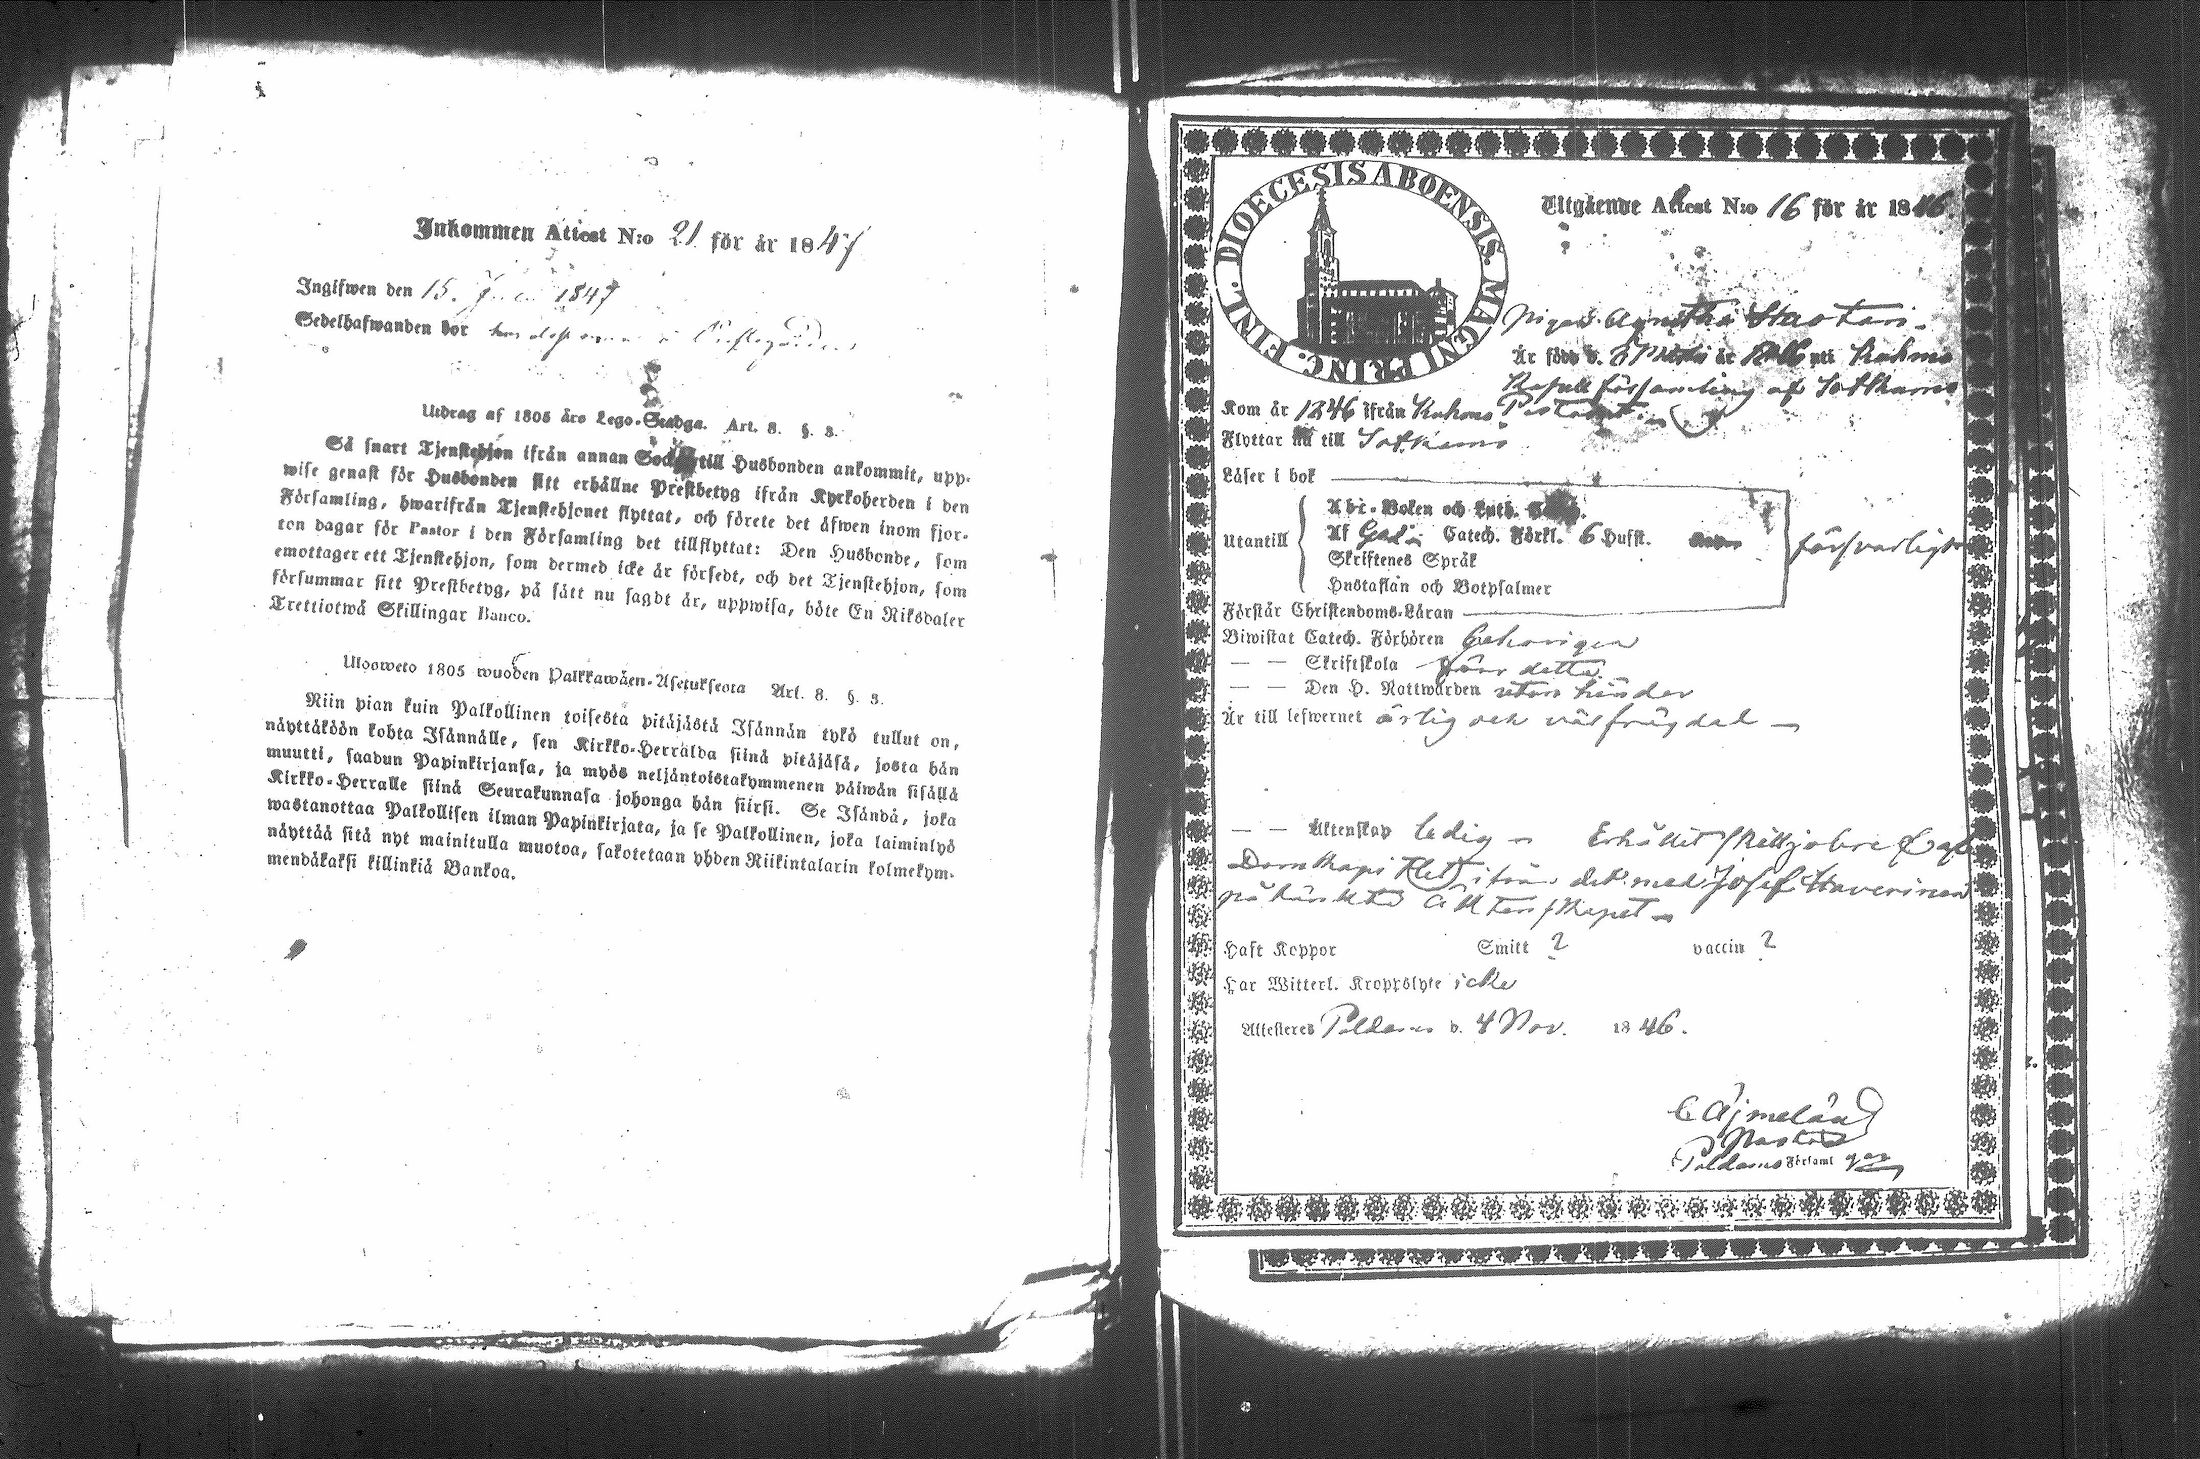 Inkommen Attest N:o 21 för år 1847
Ingifwen den 15. Juni 1847
Sedelhafwanden bor
Utdrag af 1805 års Lego-Stadga. Art. 8. §. 3.
Så snart Tjenstehjon ifrån annan Sock till Husbonden ankommit, upp-
wise genast för Husbonden sitt erhållne Prestbetyg ifrån Kyrkoherden i den
Församling, hwarifrån Tjenstehjonet flyttat, och förete det äfwen inom fjor-
ton dagar för Pastor i den Församling det tillflyttat: Den Husbonde, som
emottager ett Tjenstehjon, som dermed icke är försedt, och det Tjenstehjon, som
försummar sitt Prestbetyg, på sätt nu sagdt är, uppwisa, böte En Riksdaler
Trettiotwå Skillingar Banco.
Ulosweto 1805 wuoden Palkkawäen-Asetuksesta Art. 8. §. 3.
Niin pian kuin Palkollinen toisesta pitäjästä Isännän tykö tullut on,
näyttäköön kohta Isännälle, sen Kirkko-Herralda siinä pitäjäsä, josta hän
muutti, saadun Papinkirjansa, ja myös neljäntoistakymmenen päiwän sisällä
Kirkko-Herralle siinä Seurakunnasa johonga hän siirsi. Se Isändä, joka
wastanottaa Palkollisen ilman Papinkirjata, ja se Palkollinen, joka laiminlyö
näyttää sitä nyt mainitulla muotoa, sakotetaan yhden Riikintalarin kolmekym-
mendäkaksi killinkiä Bankoa.
DIOECESIS ABOENSIS. MAGNI PRINC. FINL.
Utgående Attest N:o 16 för år 1846.
Pigan Agnetha
Är född d. år uti Kuhmo
Kapell församling af Sotkamo
Kom år 1846 ifrån Kuhmo
Flyttar nu till Sotkamo
Läser i bok
Utantill
Abc-Boken och Luth. Catech.
Af Catech. Förkl. 6 Hufst.
Skriftenes Språk
Hustaflan och Botpsalmer
försvarligt
Förstår Christendoms-Läran
Biwistat Catech. Förhören behörigen
— — Skriftskola förr detta
— — Den H. Nattwarden utan hinder
Är till lefwernet ärlig och välfrägdad —
— — Äktenskap ledig — Erhållit skiljobref af
Domkapitlet ifrån det med Josef Haverinen
påtänkta äktenskapet —
Haft Koppor Smitt ? vaccin ?
Har Witterl. Kroppslyte icke
Attesteras Paldamo d. 4 Nov. 1846.
C Ajmelä
Pastor
Paldamo Församl